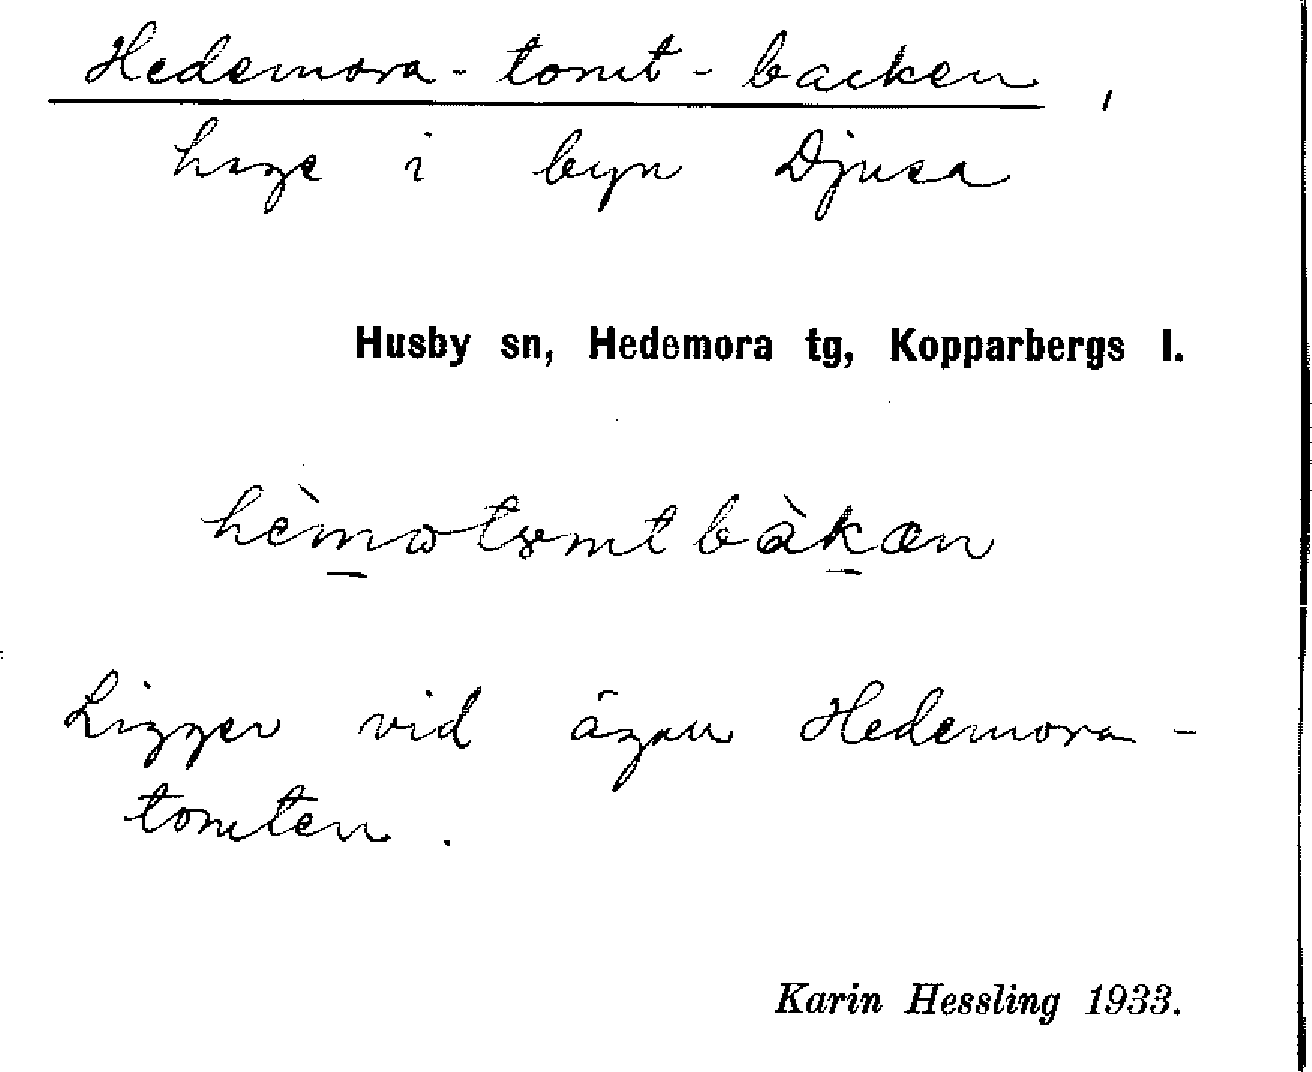 Hedemora-tomt-backen,
hage i byn Djusa
Husby sn, Hedemora tg, Kopparbergs l.
Ligger vid ägan Hedemora-
tomten.
Karin Hessling 1933.